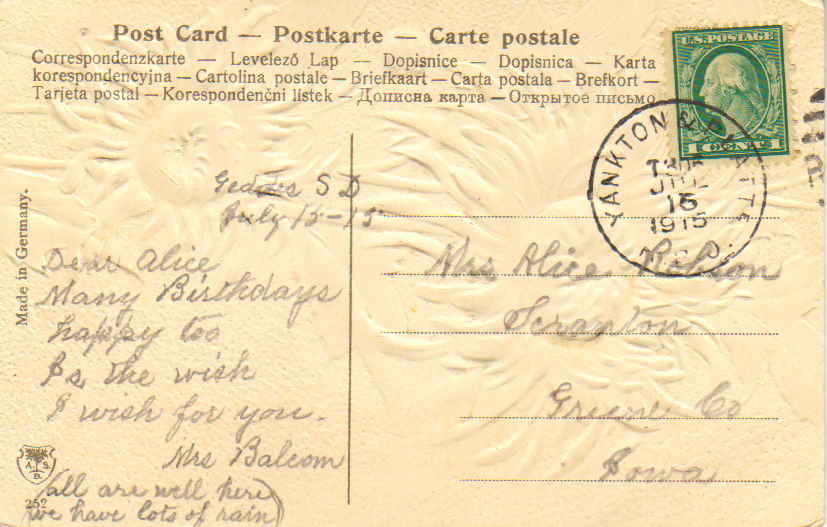 Post Card — Postkarte — Carte postale
Correspondenzkarte — Levelező Lap — Dopisnice — Dopisnica — Karta
korespondencyjna — Cartolina postale — Briefkaart — Carta postala — Brefkort —
Tarjeta postal — Korespondenční lístek — Дописна карта — Открытое письмо
U.S. POSTAGE
1 CENT 1
YANKTON & PLATTE
JUL
15
1915
R.P.O.
Geddes S D
July 15-15
Dear Alice
Many Birthdays
happy too
Is the wish
I wish for you.
Mrs Balcom
(all are well here
we have lots of rain)
Mrs Alice Robson
Scranton
Greene Co
Iowa
Made in Germany.
A. S.
B.
252